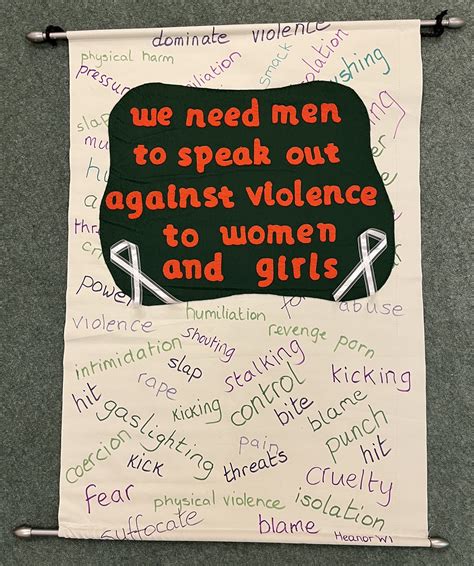 dominate violence
physical harm
smack
pressure
slap
we need men
to speak out
against violence
to women
and girls
power
humiliation
abuse
violence
shouting
revenge porn
intimidation
slap
stalking
kicking
hit
rape
kicking
control
bite
blame
gaslighting
punch
coercion
kick
pain
hit
threats
cruelty
fear
physical violence
isolation
suffocate
blame
Heanor WI